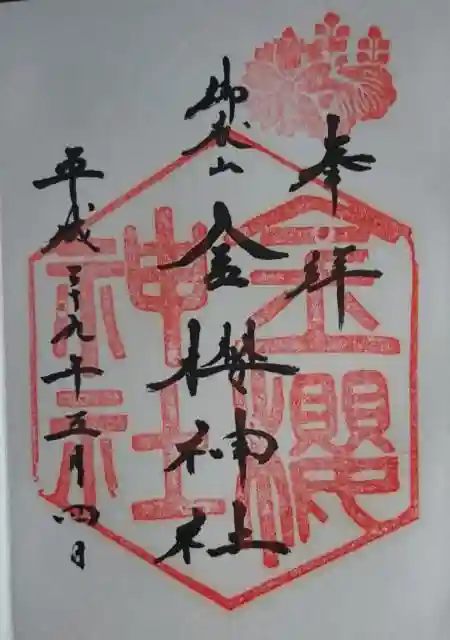 奉拝
御嶽山
金櫻神社
平成二十九年五月四日
金櫻
神社